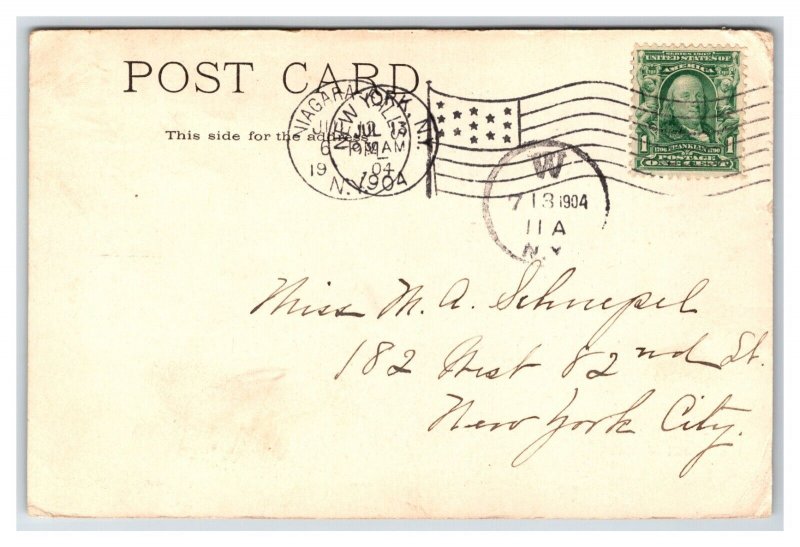 POST CARD.
This side for the address
NIAGARA FALLS
6 PM
19 04
N.Y.
NEW YORK, N.Y.
JUL 13
9 30 AM
1904
W
7 13 1904
11 A
N.Y.
SERIES 1902
UNITED STATES OF
AMERICA
1706 FRANKLIN 1790
1 POSTAGE 1
ONE CENT
Miss M. A. Schnepel
182 West 82nd St.
New York City.